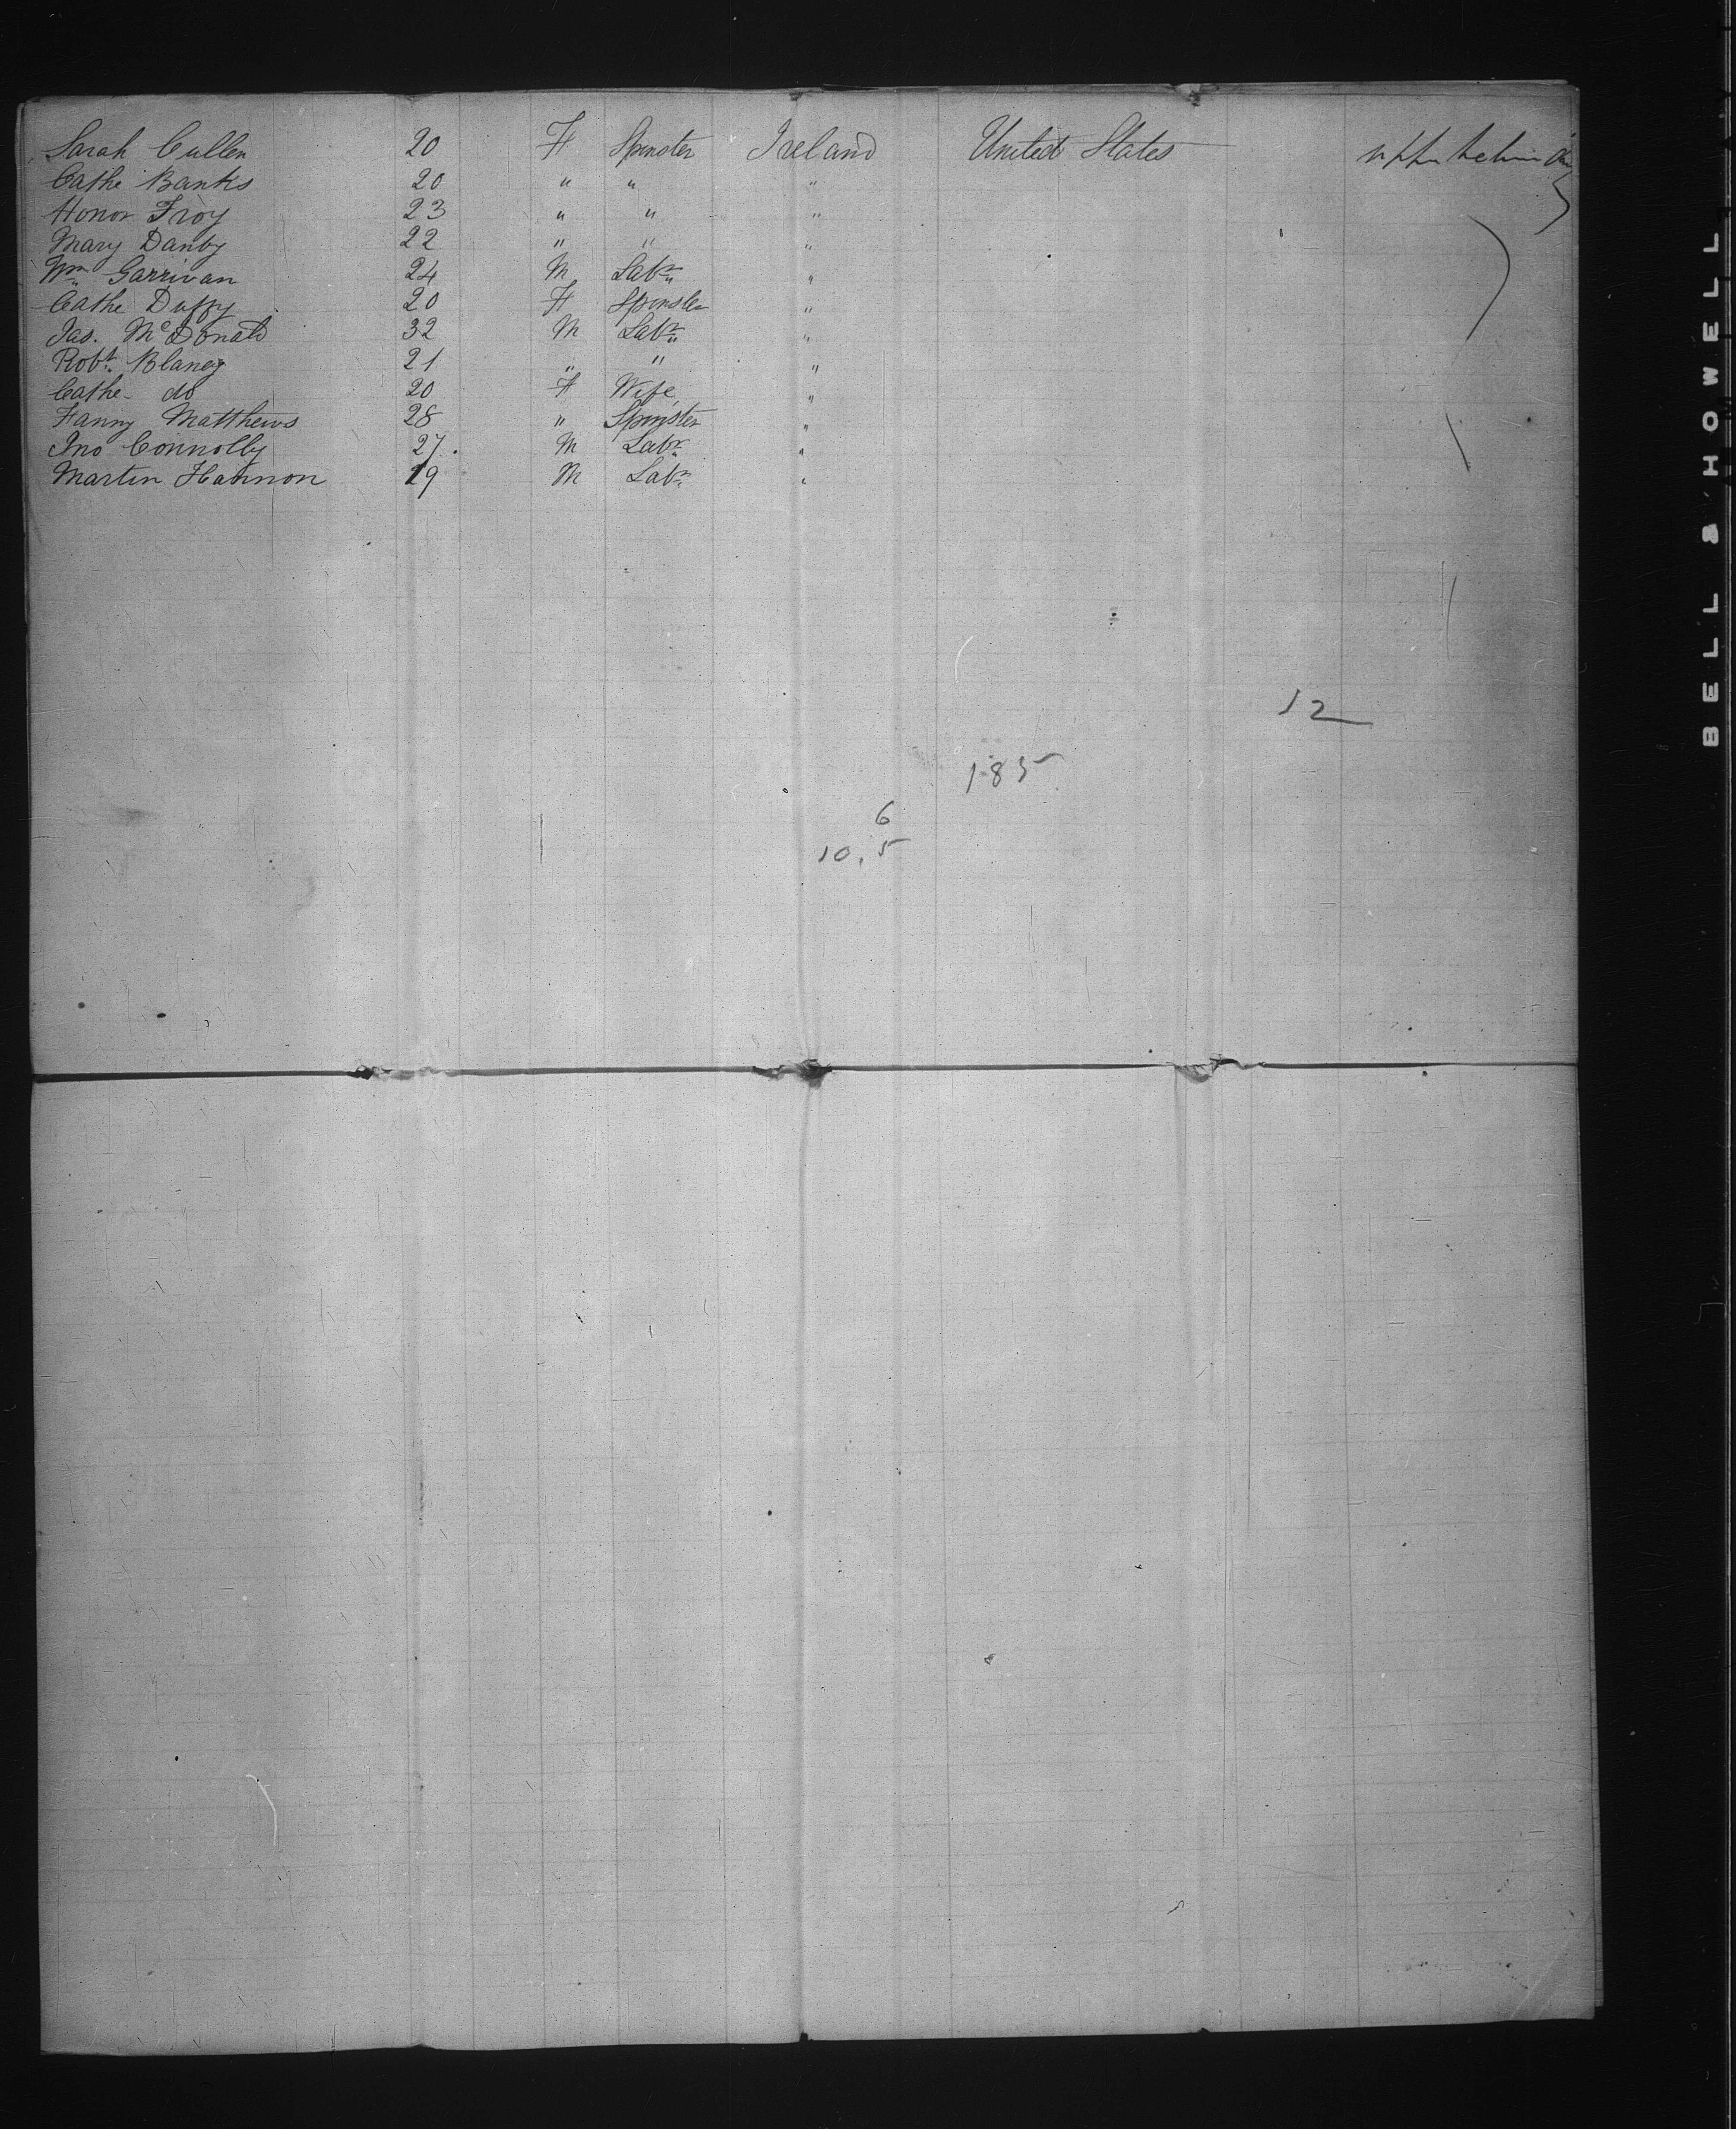 Sarah Cullen 20 F Spinster Ireland United States upper between dks
Cathe Banks 20 " " "
Honor Troy 23 " " "
Mary Danby 22 " " "
Wm Garrivan 24 M Labr "
Cathe Duffy 20 F Spinster "
Jas. McDonald 32 M Labr "
Robt. Blaney 21 " " "
Cathe do 20 F Wife "
Fanny Matthews 28 " Spinster "
Jno Connolly 27. M Labr "
Martin Hannon 19 M Labr "
12
185
6
10.5
BELL & HOWELL